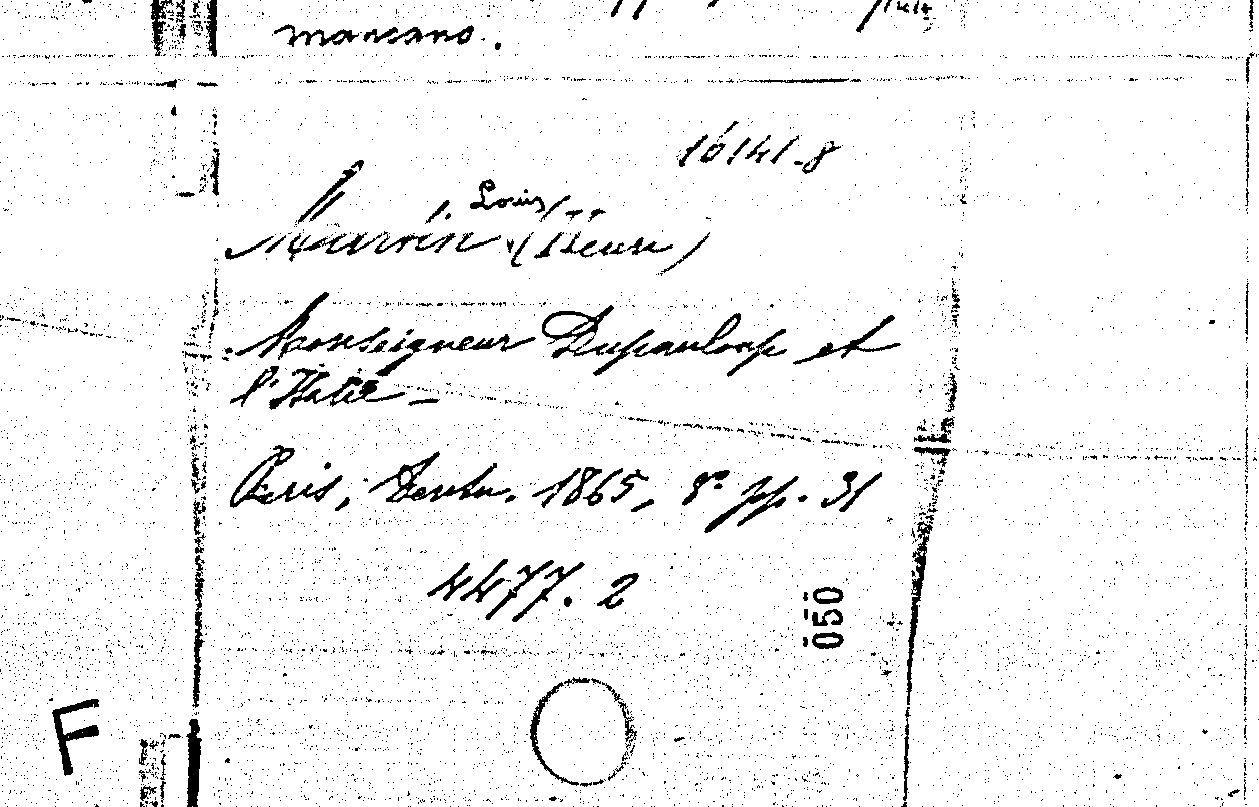 mancano.
16141-8
Louis
Martin (Henri)
Monseigneur Dupanloup et
l'Italie -
Paris, Dentu. 1865, 8° pp. 31
4477. 2
050
F